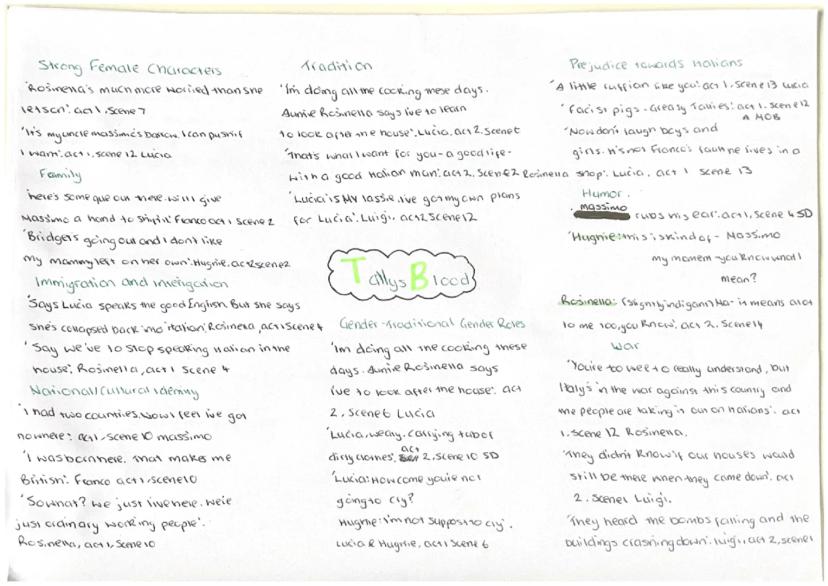 Strong Female Characters
'Rosinella's much more worried than she
lets on'. act 1, scene 7
'It's my uncle massimo's barrow. I can push it if
I want'. act 1, scene 12 Lucia
Family
'here's some que out there. will I give
Massimo a hand to shift it'. Franco act 1, scene 2
'Bridget's going out and I don't like
my mammy left on her own'. Hughie, act 2 scene 2
Immigration and
'Says Lucia speaks the good English. But she says
she's collapsed back into Italian'. Rosinella, act 1, scene 4
'Say we've to stop speaking Italian in the
house', Rosinella, act 1 scene 4
National/Cultural Identity
'I had two countries. Now I feel I've got
nowhere'. act 1, scene 10 massimo
'I was born here. That makes me
British'. Franco act 1, scene 10
'So what? we just live here. We're
just ordinary working people'.
Rosinella, act 1, scene 10
Tradition
'Im doing all the cooking these days.
Auntie Rosinella says I've to learn
to look after the house'. Lucia, act 2, scene 6
'That's what I want for you - a good life -
with a good Italian man'. act 2, scene 2 Rosinella
'Lucia is MY lassie. I've got my own plans
for Lucia'. Luigi, act 2, scene 12
Tallys Blood
Gender - Traditional Gender Roles
'Im doing all the cooking these
days. Auntie Rosinella says
I've to look after the house'. act
2, scene 6 Lucia
'Lucia, weary. carrying tub of
dirty clothes'. act 2, scene 10 SD
'Lucia: How come you're not
going to cry?
Hughie: I'm not suppost to cry'.
Lucia & Hughie, act 1 scene 6
Prejudice towards Italians
'A little ruffian like you'. act 1, scene 13 Lucia
'Facist pigs. Greasy Tallies'. act 1, scene 12
A MOB
'Now don't laugh boys and
girls. it's not Franco's fault he lives in a
shop'. Lucia, act 1 scene 13
Humor
massimo
rubs his ear. act 1, scene 4 SD
'Hughie: this is kind of - Massimo
my moment - you know what I
mean?
Rosinella: (slightly indignant) Ha- it means a lot
to me too, you know'. act 2, scene 14
War
'You're too wee to really understand, but
Italy's in the war against this country and
the people are taking it out on Italians'. act
1, scene 12 Rosinella.
'They didn't know if our houses would
still be there when they came down'. act
2, scene 1 Luigi.
'They heard the bombs falling and the
buildings crashing down'. luigi, act 2, scene 1